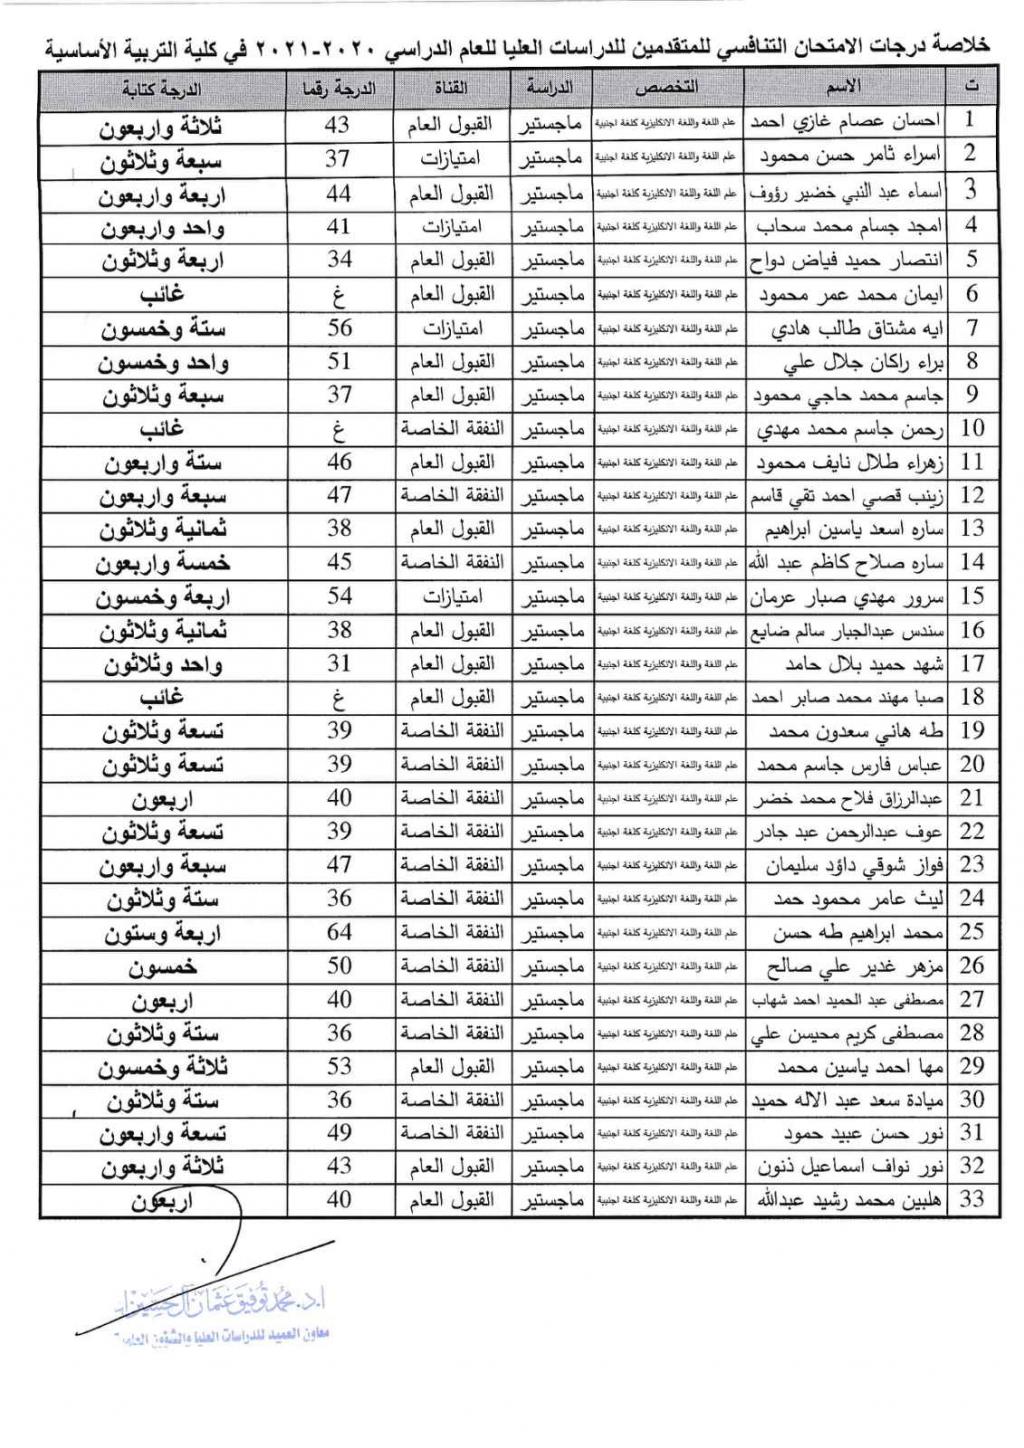 خلاصة درجات الامتحان التنافسي للمتقدمين للدراسات العليا للعام الدراسي ٢٠٢٠-٢٠٢١ في كلية التربية الأساسية
ت الاسم التخصص الدراسة القناة الدرجة رقما الدرجة كتابة
1 احسان عصام غازي احمد علم اللغة واللغة الانكليزية كلغة اجنبية ماجستير القبول العام 43 ثلاثة واربعون
2 اسراء ثامر حسن محمود علم اللغة واللغة الانكليزية كلغة اجنبية ماجستير امتيازات 37 سبعة وثلاثون
3 اسماء عبد النبي خضير رؤوف علم اللغة واللغة الانكليزية كلغة اجنبية ماجستير القبول العام 44 اربعة واربعون
4 امجد جسام محمد سحاب علم اللغة واللغة الانكليزية كلغة اجنبية ماجستير امتيازات 41 واحد واربعون
5 انتصار حميد فياض دواح علم اللغة واللغة الانكليزية كلغة اجنبية ماجستير القبول العام 34 اربعة وثلاثون
6 ايمان محمد عمر محمود علم اللغة واللغة الانكليزية كلغة اجنبية ماجستير القبول العام غ غائب
7 ايه مشتاق طالب هادي علم اللغة واللغة الانكليزية كلغة اجنبية ماجستير امتيازات 56 ستة وخمسون
8 براء راكان جلال علي علم اللغة واللغة الانكليزية كلغة اجنبية ماجستير القبول العام 51 واحد وخمسون
9 جاسم محمد حاجي محمود علم اللغة واللغة الانكليزية كلغة اجنبية ماجستير القبول العام 37 سبعة وثلاثون
10 رحمن جاسم محمد مهدي علم اللغة واللغة الانكليزية كلغة اجنبية ماجستير النفقة الخاصة غ غائب
11 زهراء طلال نايف محمود علم اللغة واللغة الانكليزية كلغة اجنبية ماجستير القبول العام 46 ستة واربعون
12 زينب قصي احمد تقي قاسم علم اللغة واللغة الانكليزية كلغة اجنبية ماجستير النفقة الخاصة 47 سبعة واربعون
13 ساره اسعد ياسين ابراهيم علم اللغة واللغة الانكليزية كلغة اجنبية ماجستير القبول العام 38 ثمانية وثلاثون
14 ساره صلاح كاظم عبد الله علم اللغة واللغة الانكليزية كلغة اجنبية ماجستير النفقة الخاصة 45 خمسة واربعون
15 سرور مهدي صبار عرمان علم اللغة واللغة الانكليزية كلغة اجنبية ماجستير امتيازات 54 اربعة وخمسون
16 سندس عبدالجبار سالم ضايع علم اللغة واللغة الانكليزية كلغة اجنبية ماجستير القبول العام 38 ثمانية وثلاثون
17 شهد حميد بلال حامد علم اللغة واللغة الانكليزية كلغة اجنبية ماجستير القبول العام 31 واحد وثلاثون
18 صبا مهند محمد صابر احمد علم اللغة واللغة الانكليزية كلغة اجنبية ماجستير القبول العام غ غائب
19 طه هاني سعدون محمد علم اللغة واللغة الانكليزية كلغة اجنبية ماجستير النفقة الخاصة 39 تسعة وثلاثون
20 عباس فارس جاسم محمد علم اللغة واللغة الانكليزية كلغة اجنبية ماجستير النفقة الخاصة 39 تسعة وثلاثون
21 عبدالرزاق فلاح محمد خضر علم اللغة واللغة الانكليزية كلغة اجنبية ماجستير النفقة الخاصة 40 اربعون
22 عوف عبدالرحمن عبد جادر علم اللغة واللغة الانكليزية كلغة اجنبية ماجستير النفقة الخاصة 39 تسعة وثلاثون
23 فواز شوقي داؤد سليمان علم اللغة واللغة الانكليزية كلغة اجنبية ماجستير النفقة الخاصة 47 سبعة واربعون
24 ليث عامر محمود حمد علم اللغة واللغة الانكليزية كلغة اجنبية ماجستير النفقة الخاصة 36 ستة وثلاثون
25 محمد ابراهيم طه حسن علم اللغة واللغة الانكليزية كلغة اجنبية ماجستير النفقة الخاصة 64 اربعة وستون
26 مزهر غدير علي صالح علم اللغة واللغة الانكليزية كلغة اجنبية ماجستير النفقة الخاصة 50 خمسون
27 مصطفى عبد الحميد احمد شهاب علم اللغة واللغة الانكليزية كلغة اجنبية ماجستير النفقة الخاصة 40 اربعون
28 مصطفى كريم محيسن علي علم اللغة واللغة الانكليزية كلغة اجنبية ماجستير النفقة الخاصة 36 ستة وثلاثون
29 مها احمد ياسين محمد علم اللغة واللغة الانكليزية كلغة اجنبية ماجستير القبول العام 53 ثلاثة وخمسون
30 ميادة سعد عبد الاله حميد علم اللغة واللغة الانكليزية كلغة اجنبية ماجستير النفقة الخاصة 36 ستة وثلاثون
31 نور حسن عبيد حمود علم اللغة واللغة الانكليزية كلغة اجنبية ماجستير النفقة الخاصة 49 تسعة واربعون
32 نور نواف اسماعيل ذنون علم اللغة واللغة الانكليزية كلغة اجنبية ماجستير القبول العام 43 ثلاثة واربعون
33 هلبين محمد رشيد عبدالله علم اللغة واللغة الانكليزية كلغة اجنبية ماجستير القبول العام 40 اربعون
ا.د. محمد توفيق عثمان آل
معاون العميد للدراسات العليا والشؤون